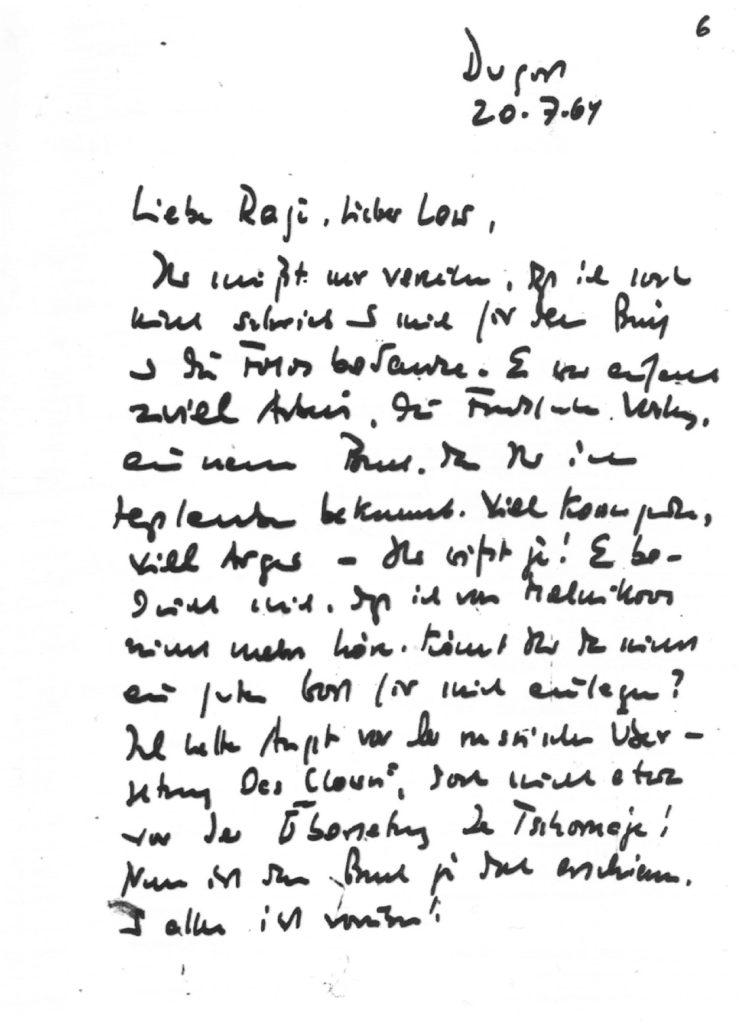 6
Dugort
20.7.64
Liebe Raja, lieber Lew,
Ihr müßt mir verzeihen, daß ich noch
nicht schrieb u mich für den Brief
u die Fotos bedankte. Es war
zuviel Arbeit, die Frankfurter Vorlesg,
ein neues Buch, das Ihr im
September bekommt. Viel Korrespondenz,
viel Ärger – Ihr wißt ja! Es be-
drückt mich, daß ich von Melnikows
nichts mehr höre. Könnt Ihr da nicht
ein gutes Wort für mich einlegen?
Ich hatte Angst vor der russischen Über-
setzung Des Clowns, doch nicht etwa
vor der Übersetzung der Tschornaja!
Nun ist das Buch ja doch erschienen,
u alles ist vorüber!